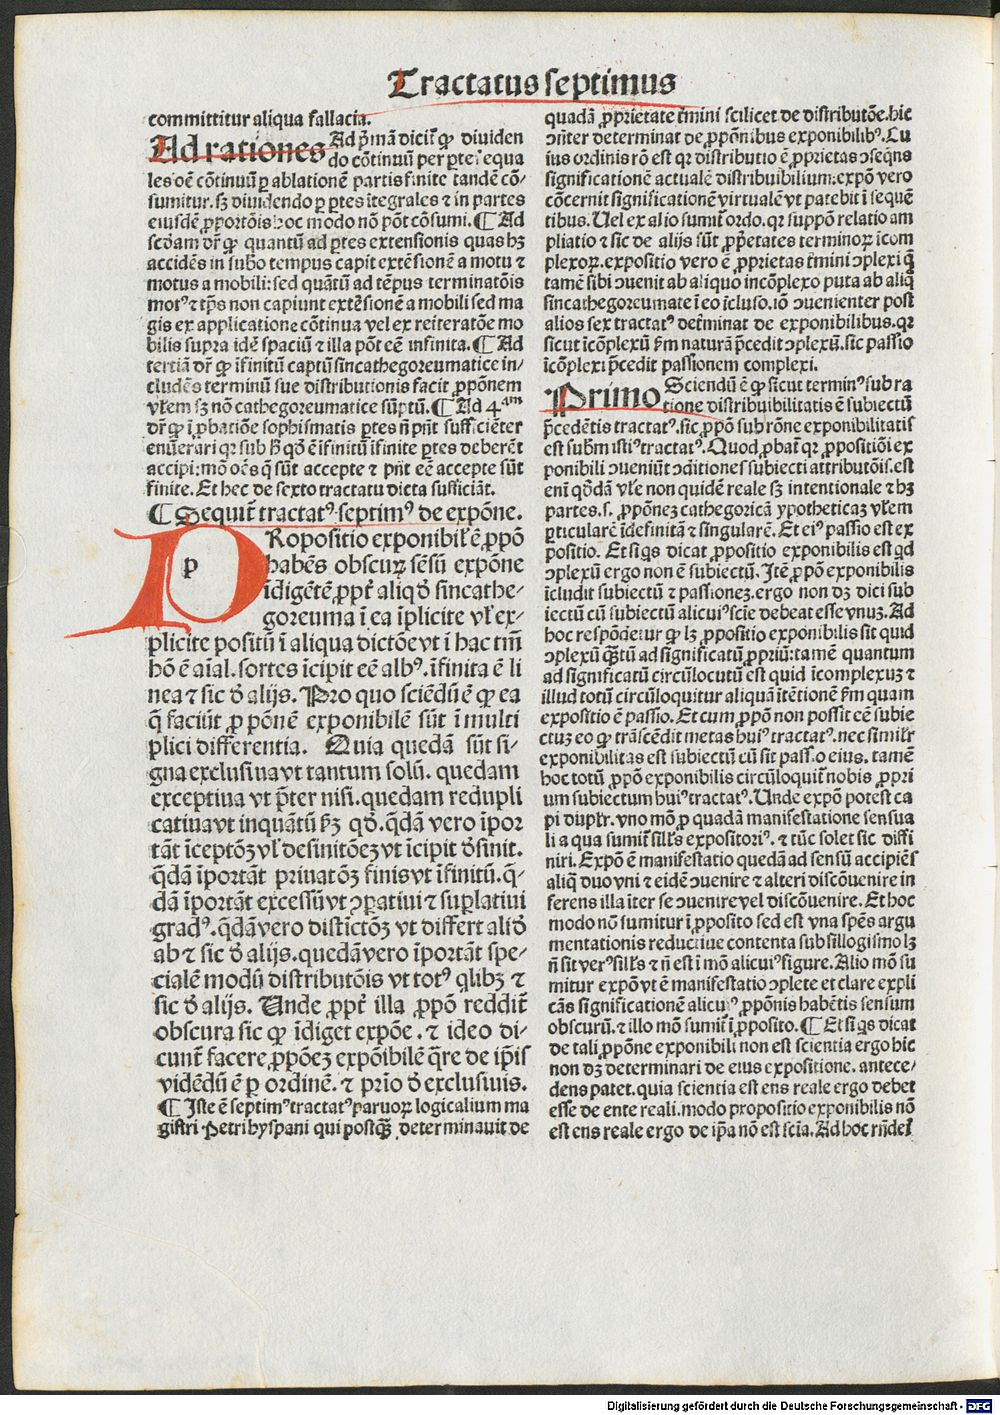 Tractatus septimus
committitur aliqua fallacia.
Ad rationes Ad pͥmā dicit᷑ ꝙ diuiden
do cōtinuū per ꝑtes equa
les oē cōtinuū ꝑ ablationē partis finite tandē cō-
sumitur. sꝫ diuidendo ꝑ ꝑtes ītegrales ⁊ in partes
eiusdē ꝓportōis hoc modo nō pōt cōsumi. ¶ Ad
scḋam dr̄ ꝙ quantū ad ꝑtes extensionis quas hꝫ
accidēs in subō tempus capit extēsionē a motu ⁊
motus a mobili: sed quātū ad tēpus terminatōis
motꝰ ⁊ tp̄s non capiunt extēsionē a mobili sed ma
gis ex applicatione cōtinua vel ex reiteratōe mo
bilis supra idē spaciū ⁊ illa pōt eē infinita. ¶ Ad
tertiā dr̄ ꝙ īfinitū captū sincathegoreumatice in-
cludēs terminū siue distributionis facit ꝓpōnem
vl̄em sꝫ nō cathegoreumatice sūptū. ¶ Ad 4ᵃᵐ
dr̄ ꝙ ī ꝓbatiōe sophismatis ꝑtes nō pn̄t sufficiēter
enūerari qr sub hͦ qḋ ē īfinitū īfinite ꝑtes deberēt
accipi: mō oēs q̄ sūt accepte ⁊ pn̄t eē accepte sūt
finite. Et hec de sexto tractatu dicta sufficiāt.
¶ Sequit᷑ tractatꝰ septimꝰ de expōne.
p
PRopositio exponibił ē ꝓpō
habēs obscuꝝ sēsū expōne
īdigētē ꝓpt᷑ aliqḋ sincathe-
goreuma ī ea īplicite vł ex-
plicite positū ī aliqua dictōe vt ī hac tm̄
hō ē aīal. sortes īcipit eē albꝰ. īfinita ē li
nea ⁊ sic ḋ alijs. Pro quo sciēdū ē ꝙ ea
q̄ faciūt ꝓpōnē exponibilē sūt ī multi
plici differentia. Quia quedā sūt si-
gna exclusiua vt tantum solū. quedam
exceptiua vt p̄ter nisi. quedam redupli
catiua vt inquātū ẜꝫ qḋ. q̄dā vero īpor
tāt īceptōꝫ vł desinitōeꝫ vt īcipit ḋsinit.
q̄dā īportāt priuatōꝫ finis vt īfinitū. q̄-
dā īportāt excessū vt ꝯparatiui ⁊ suꝑlatiui
gradꝰ. q̄dā vero distīctōꝫ vt differt aliḋ
ab ⁊ sic ḋ alijs. quedā vero īportāt spe-
cialē modū distributōis vt totꝰ qlibꝫ ⁊
sic ḋ alijs. Unde ꝓpt᷑ illa ꝓpō reddit᷑
obscura sic ꝙ īdiget expōe. ⁊ ideo di-
cunt᷑ facere ꝓpōeꝫ expōibilē q̄re de ip̄is
vidēdū ē ꝑ ordinē. ⁊ prīo ḋ exclusiuis.
¶ Iste ē septimꝰ tractatꝰ paruoꝝ logicalium ma
gistri Petri hyspani qui postq̄ꝫ determinauit de
quadā ꝓprietate t᷑mini scilicet de distributōe. hic
ꝯn̄ter determinat de ꝓpōnibus exponibilibꝰ. Cu
ius ordinis rō est qr distributio ē ꝓprietas ꝯseqn̄s
significationē actualē distribuibilium: expō vero
cōcernit significationē virtualē vt patebit ī sequē
tibus. Uel ex alio sumit᷑ ordo. qr suppō relatio am
pliatio ⁊ sic de alijs sūt ꝓprietates terminoꝝ īcom
plexoꝝ. expositio vero ē ꝓprietas t᷑mini ꝯplexi q̄
tamē sibi ꝯuenit ab aliquo incōplexo puta ab aliq̄
sincathegoreumate ī eo īcluso. iō ꝯuenienter post
alios sex tractatꝰ det᷑minat de exponibilibus. qr
sicut īcōplexū ẜm naturā p̄cedit ꝯplexū. sic passio
īcōplexi p̄cedit passionem complexi.
Primo Sciendū ē ꝙ sicut terminꝰ sub ra
tione distribuibilitatis ē subiectū
p̄cedētis tractatꝰ. sic ꝓpō sub rōne exponibilitatis
est subm̄ istiꝰ tractatꝰ. Quod ꝓbat᷑ qr ꝓpositiōi ex
ponibili ꝯueniūt ꝯditiones subiecti attributōis. est
eni qḋdā vl̄e non quidē reale sꝫ intentionale ⁊ hꝫ
partes. s. ꝓpōneꝫ cathegoricā ypotheticaꝫ vl̄em
ꝑticularē īdefinitā ⁊ singularē. Et eiꝰ passio est ex
positio. Et si qͥs dicat ꝓpositio exponibilis est qͥd
ꝯplexū ergo non ē subiectū. Itē ꝓpō exponibilis
īcludit subiectū ⁊ passioneꝫ. ergo non dꝫ dici sub
iectū cū subiectū alicuiꝰ scīe debeat esse vnuꝫ. Ad
hoc respōdetur ꝙ lꝫ ꝓpositio exponibilis sit quid
ꝯplexū q̄ꝫtū ad significatū ꝓpriū: tamē quantum
ad significatū circūlocutū est quid īcomplexuꝫ ⁊
illud totū circūloquitur aliquā ītētionē ẜm quam
expositio ē passio. Et cum ꝓpō non possit eē subie
ctuꝫ eo ꝙ trāscēdit metas huiꝰ tractatꝰ. nec simił
exponibilitas est subiectū cū sit passio eius. tamē
hoc totū ꝓpō exponibilis circūloquit᷑ nobis ꝓpri
um subiectum huiꝰ tractatꝰ. Unde expō potest ca
pi dupłr. vno mō ꝓ quadā manifestatione sensua
li a qua sumit᷑ sillꝰs expositoriꝰ. ⁊ tūc solet sic diffi
niri. Expō ē manifestatio quedā ad sensū accipiēs
aliq̄ duo vni ⁊ eidē ꝯuenire ⁊ alteri discōuenire in
ferens illa īter se ꝯuenire vel discōuenire. Et hoc
modo nō sumitur ī ꝓposito sed est vna spēs argu
mentationis reductiue contenta sub sillogismo lꝫ
n̄ sit verꝰ sillꝰs ⁊ n̄ est ī mō alicuiꝰ figure. Alio mō su
mitur expō vt ē manifestatio ꝯplete et clare expli
cās significationē alicuiꝰ ꝓpōnis habētis sensum
obscurū. ⁊ illo mō sumit᷑ ī ꝓposito. ¶ Et si qͥs dicat
de tali ꝓpōne exponibili non est scientia ergo hic
non dꝫ determinari de eius expositione. antece-
dens patet. quia scientia est ens reale ergo debet
esse de ente reali. modo propositio exponibilis nō
est ens reale ergo de ip̄a nō est scīa. Ad hoc rn̄det᷑
Digitalisierung gefördert durch die Deutsche Forschungsgemeinschaft - DFG